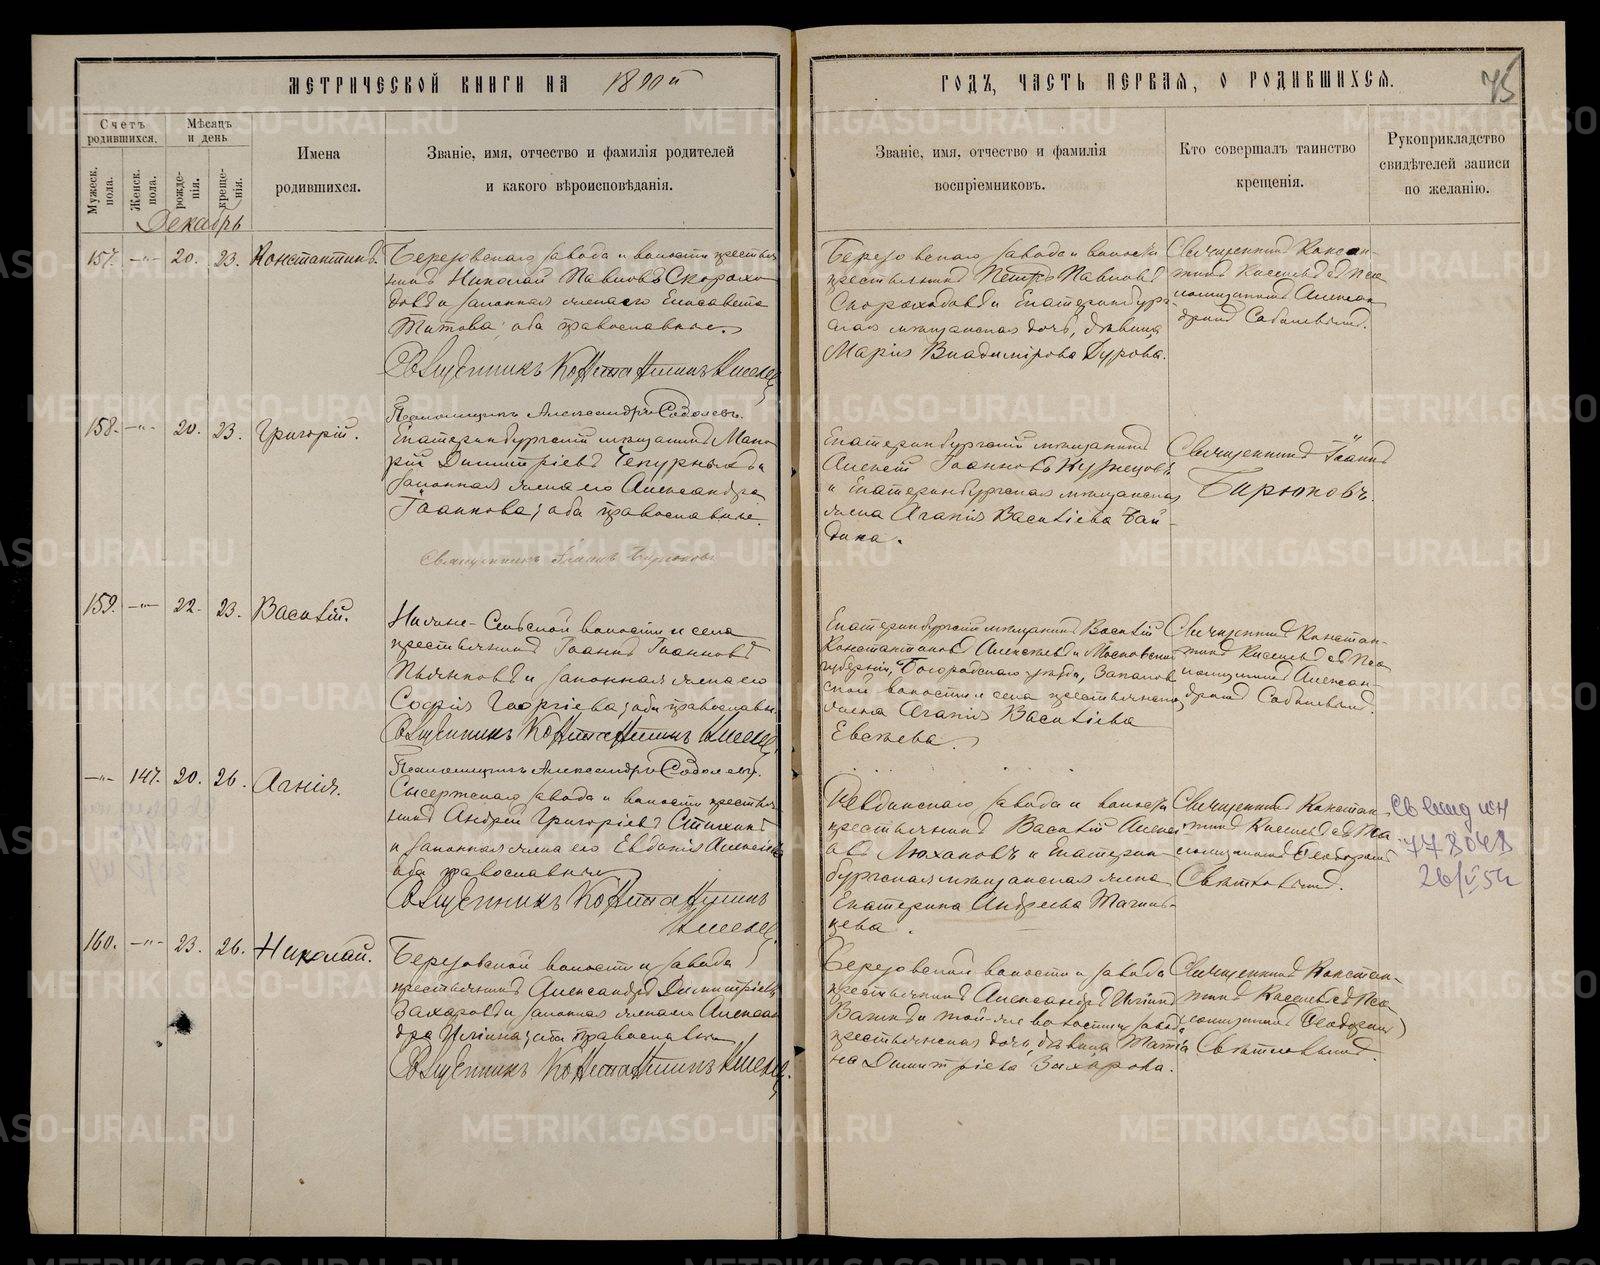 МЕТРИЧЕСКОЙ КНИГИ НА 1890й
ГОДЪ, ЧАСТЬ ПЕРВАЯ, О РОДИВШИХСЯ.
75
Счетъ родившихся.
Мѣсяцъ и день
Мужеск. пола.
Женск. пола.
рожде-нія.
креще-нія.
Имена
родившихся.
Званіе, имя, отчество и фамилія родителей
и какого вѣроисповѣданія.
Званіе, имя, отчество и фамилія
воспріемниковъ.
Кто совершалъ таинство
крещенія.
Рукоприкладство
свидѣтелей записи
по желанію.
Декабрь
157. -"- 20. 23. Константинъ.
Березовскаго завода и волости крестья-
нинъ Николай Павловъ Скорохо-
довъ и законная жена его Елисавета
Титова; оба православные.
Священникъ Константинъ
Псаломщикъ Александръ Соболевъ.
Березовскаго завода и волости
крестьянинъ Петръ Павловъ
Скороходовъ и Екатеринбург-
ская мѣщанская дочь, дѣвица
Марія Владимірова Дурова.
Священникъ Констан-
тинъ Киселевъ съ Пса
ломщикомъ Алексан-
дромъ Соболевымъ.
158. -"- 20. 23. Григорій.
Екатеринбургскій мѣщанинъ Мака-
рій Димитріевъ Чепурныхъ и
законная жена его Александра
Іоаннова; оба православные.
Священникъ Іоаннъ Бирюковъ
Екатеринбургскій мѣщанинъ
Алексѣй Іоанновъ Кузнецовъ
и Екатеринбургская мѣщанская
жена Агапія Васильева Бай-
дина.
Священникъ Іоаннъ
Бирюковъ.
159. -"- 22. 23. Василій.
волости и села
крестьянинъ Іоаннъ Іоанновъ
и законная жена его
Софія Георгіева; оба православн.
Священникъ Константинъ
Псаломщикъ Александръ Соболевъ.
Екатеринбургскій мѣщанинъ Василій
Константиновъ Алексѣевъ и Московской
губерніи, Богородскаго уѣзда,
ской волости и села крестьянская
жена Агапія Васильева
Евсѣева.
Священникъ Констан-
тинъ Киселевъ съ Пса
ломщикомъ Алексан-
дромъ Соболевымъ.
-"- 147. 20. 26. Агнія.
Сысертскаго завода и волости крестья-
нинъ Андрей Григоріевъ
и законная жена его Евдокія Алексѣева
оба православные
Священникъ Константинъ
Киселевъ
Невдинскаго завода и волости
крестьянинъ Василій Алексѣ-
евъ Люхановъ и Екатерин-
бургская мѣщанская жена
Екатерина Андреева
Священникъ Констан-
тинъ Киселевъ съ Пса
ломщикомъ Ѳеодоромъ
778048
160. -"- 23. 26. Николай.
Березовской волости и завода
крестьянинъ Александръ Димитріевъ
Захаровъ и законная жена его Алексан
дра Ильина; оба православные
Священникъ Константинъ
Березовской волости и завода
крестьянинъ Александръ Ильинъ
и той-же волости и завода
крестьянская дочь, дѣвица Татія-
на Димитріева Захарова.
Священникъ Констан-
тинъ Киселевъ съ Пса
ломщикомъ Ѳеодоромъ